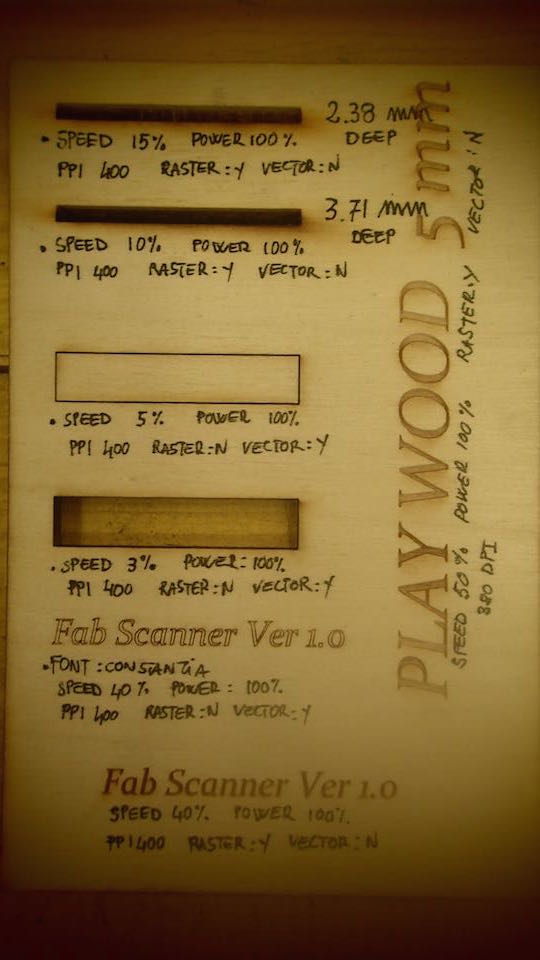 2.38 mm
DEEP
• SPEED 15% POWER 100%
PPI 400 RASTER: Y VECTOR: N
3.71 mm
DEEP
• SPEED 10% POWER 100%
PPI 400 RASTER: Y VECTOR: N
• SPEED 5% POWER 100%
PPI 400 RASTER: N VECTOR: Y
• SPEED 3% POWER: 100%
PPI 400 RASTER: N VECTOR: Y
Fab Scanner Ver 1.0
• FONT: CONSTANTIA
SPEED 40% POWER: 100%
PPI 400 RASTER: N VECTOR: Y
Fab Scanner Ver 1.0
SPEED 40% POWER 100%
PPI 400 RASTER: Y VECTOR: N
PLAY WOOD 5 mm
SPEED 50% POWER 100% RASTER: Y VECTOR: N
380 DPI